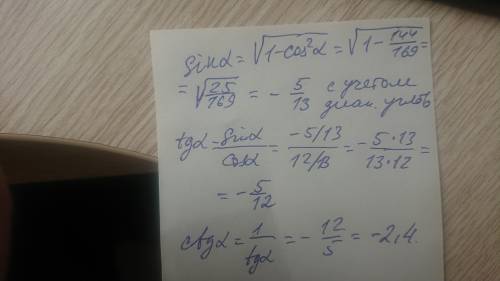 sinα = √(1-cos²α) = √(1 - 144/169) =
= √(25/169) = - 5/13 с учетом
диап. углов
tgα = sinα/cosα = (-5/13)/(12/13) = - (5·13)/(13·12) =
= - 5/12
ctgα = 1/tgα = - 12/5 = -2,4.